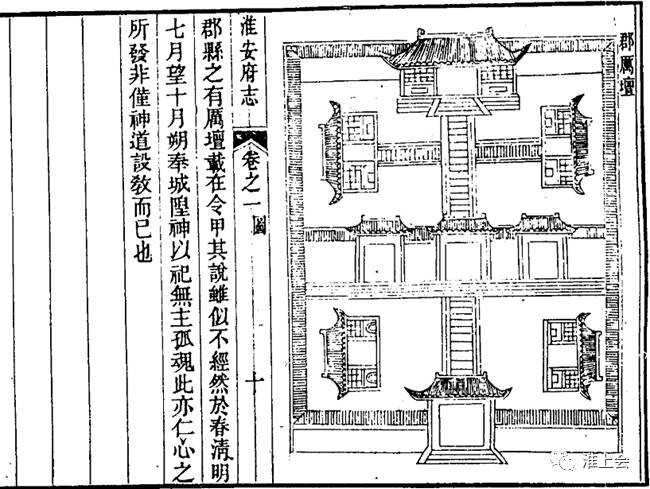 郡厲壇
淮安府志
卷之一
圖
十
郡縣之有厲壇載在令甲其說雖似不經然於春清明
七月望十月朔奉城隍神以祀無主孤魂此亦仁心之
所發非僅神道設教而已也
淮上会